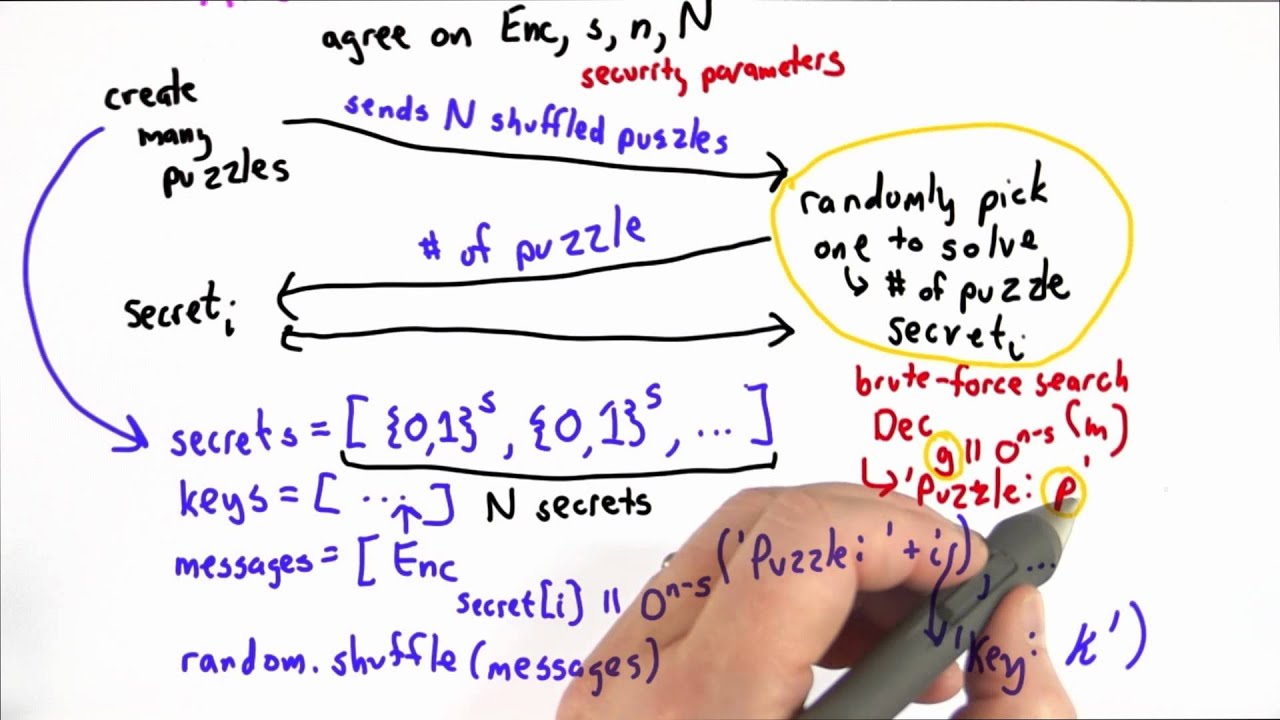 agree on Enc, s, n, N
security parameters
create
many
puzzles
sends N shuffled puzzles
randomly pick
one to solve
↳ # of puzzle
secretᵢ
# of puzzle
secretᵢ
brute-force search
Dec g || 0ⁿ⁻ˢ (m)
↳ 'Puzzle: p'
secrets = [ {0,1}ˢ, {0,1}ˢ, ... ]
N secrets
keys = [ ... ]
↑
messages = [ Enc secret[i] || 0ⁿ⁻ˢ ('Puzzle: ' + i, ...
'Key: k')
random.shuffle(messages)